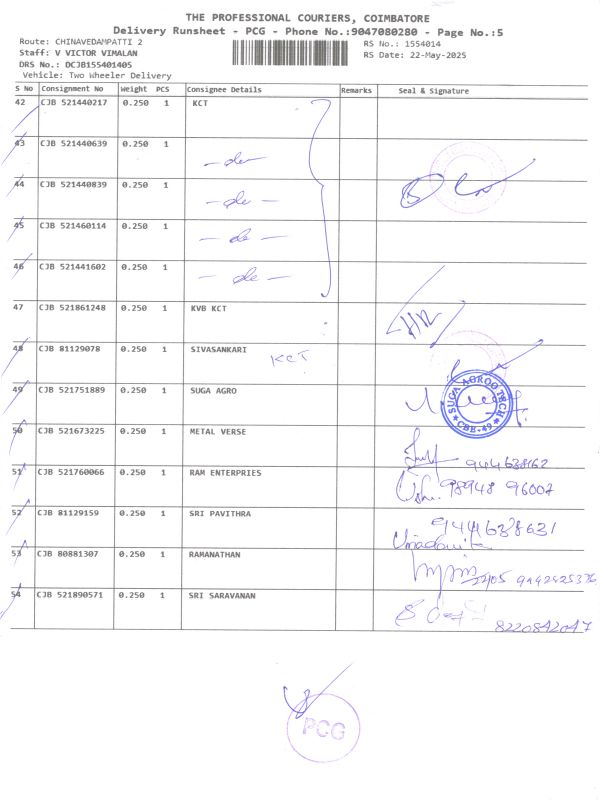 THE PROFESSIONAL COURIERS, COIMBATORE
Delivery Runsheet - PCG - Phone No.:9047080280 - Page No.:5
Route: CHINAVEDAMPATTI 2
RS No.: 1554014
Staff: V VICTOR VIMALAN
RS Date: 22-May-2025
DRS No.: DCJB155401405
Vehicle: Two Wheeler Delivery
S No Consignment No Weight PCS Consignee Details Remarks Seal & Signature
42 CJB 521440217 0.250 1 KCT
43 CJB 521440639 0.250 1 - do -
44 CJB 521440839 0.250 1 - do -
45 CJB 521460114 0.250 1 - do -
46 CJB 521441602 0.250 1 - do -
47 CJB 521861248 0.250 1 KVB KCT
48 CJB 81129078 0.250 1 SIVASANKARI KCT
49 CJB 521751889 0.250 1 SUGA AGRO SUGA AGROO TECH CBE-49
50 CJB 521673225 0.250 1 METAL VERSE
51 CJB 521760066 0.250 1 RAM ENTERPRIES 98948 96007
52 CJB 81129159 0.250 1 SRI PAVITHRA 9444638631
53 CJB 80881307 0.250 1 RAMANATHAN
54 CJB 521890571 0.250 1 SRI SARAVANAN 8220842047
PCG